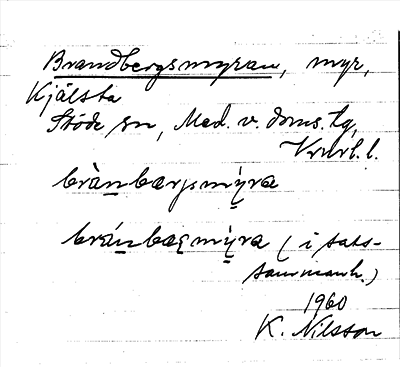 Brandbergsmyran, myr,
Kjälsta
Stöde sn, Med. v. doms. tg,
Vnrl. l.
bràn̲bærjsmy̲ra
brán̲bæsmy̲ra (i sats-
sammanh.)
1960
K. Nilsson